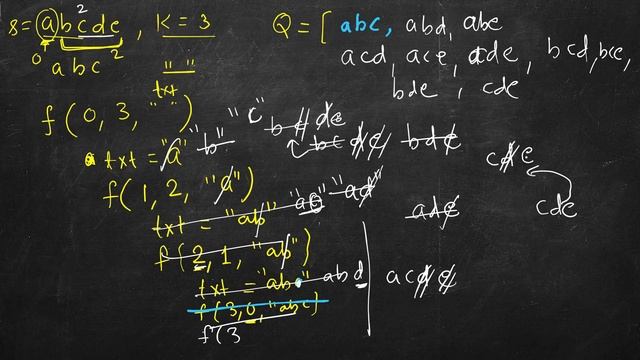 s = abcde , K = 3
2
0 abc 2
" "
txt
Q = [ abc, abd, abe
acd, ace, ade, bcd, bce,
bde, cde
f(0, 3, " ")
txt = "a" "b" "c"
bde
bde
cde
cde
f(1, 2, "a")
txt = "ab" "ac" "ad"
ade
f(2, 1, "ab")
txt = "abc" abd
acde
f(3, 0, "abc")
f(3